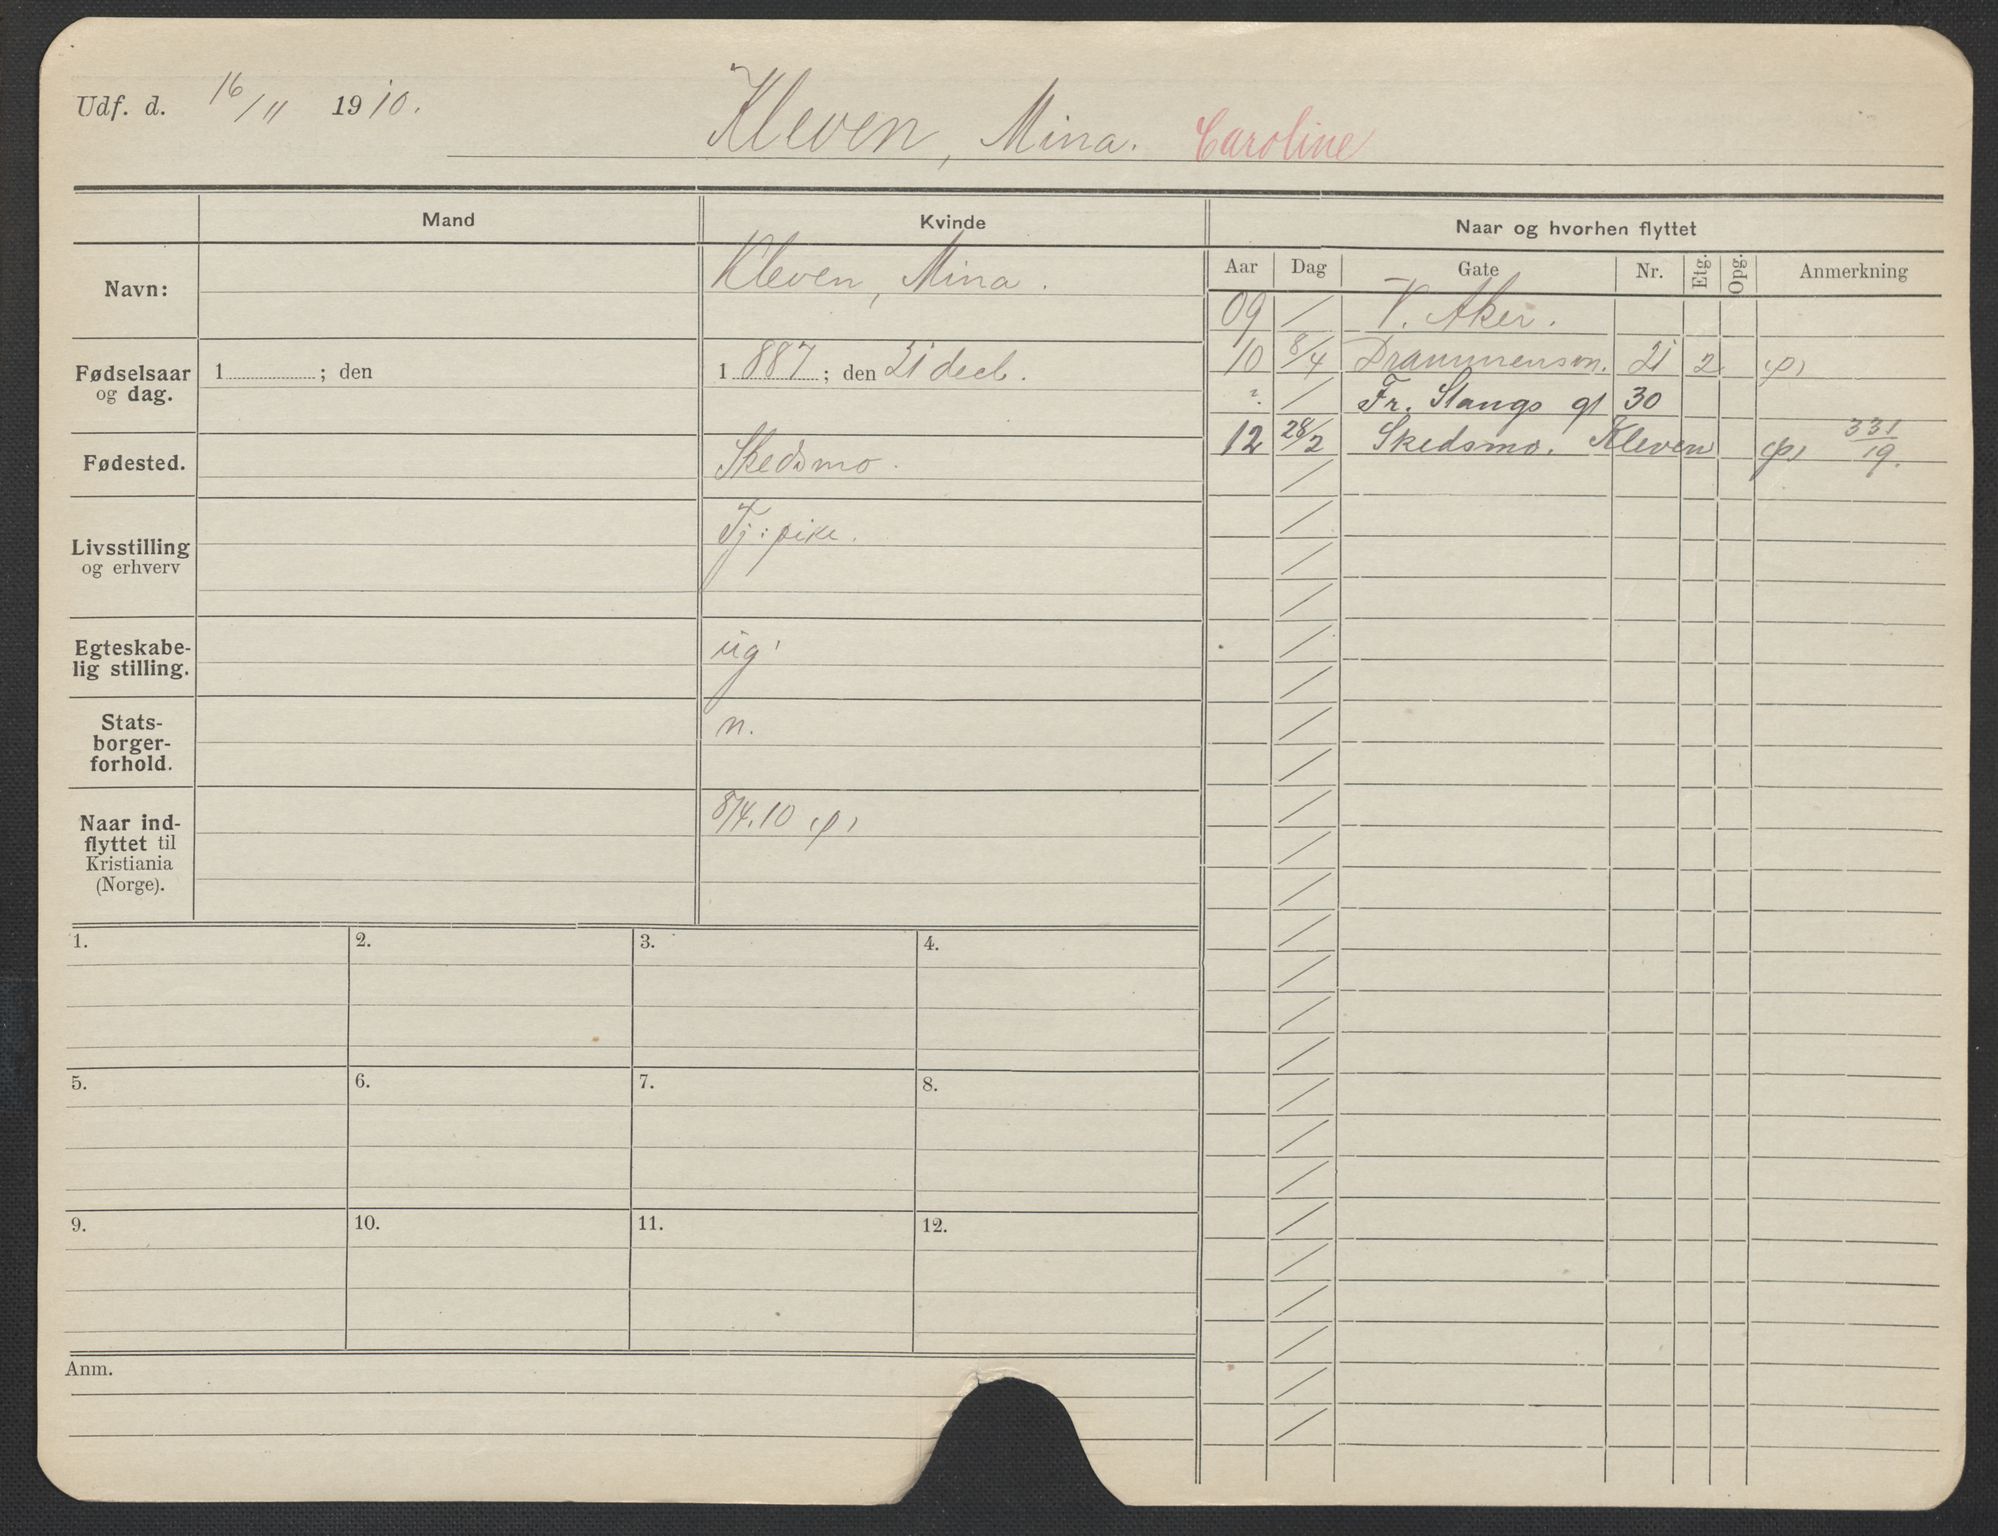 Udf. d. 16/11 1910.
Kleven, Mina. Caroline
Mand
Kvinde
Naar og hvorhen flyttet
Aar Dag Gate Nr. Etg. Opg. Anmerkning
Navn:
Kleven, Mina.
Fødselsaar
og dag.
1 ; den
1 887 ; den 21 decb.
Fødested.
Skedsmo.
Livsstilling
og erhverv
Tj: pike.
Egteskabe-
lig stilling.
ug
Stats-
borger-
forhold.
n.
Naar ind-
flyttet til
Kristiania
(Norge).
8/4.10
09 / V. Aker.
10 8/4 Drammensvn. 21 2
/ Fr. Stangs gt 30
12 28/2 Skedsmo. Kleven 331/19.
1.
2.
3.
4.
5.
6.
7.
8.
9.
10.
11.
12.
Anm.